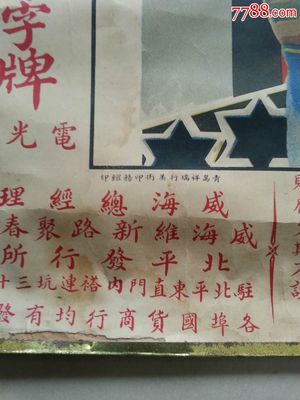 7788.com
字牌
電光
青島祥瑞行美術印務舘印
威海總經理
威海維新路聚春
北平發行所
駐北平東直門內褡連坑三十
各埠國貨商行均有發